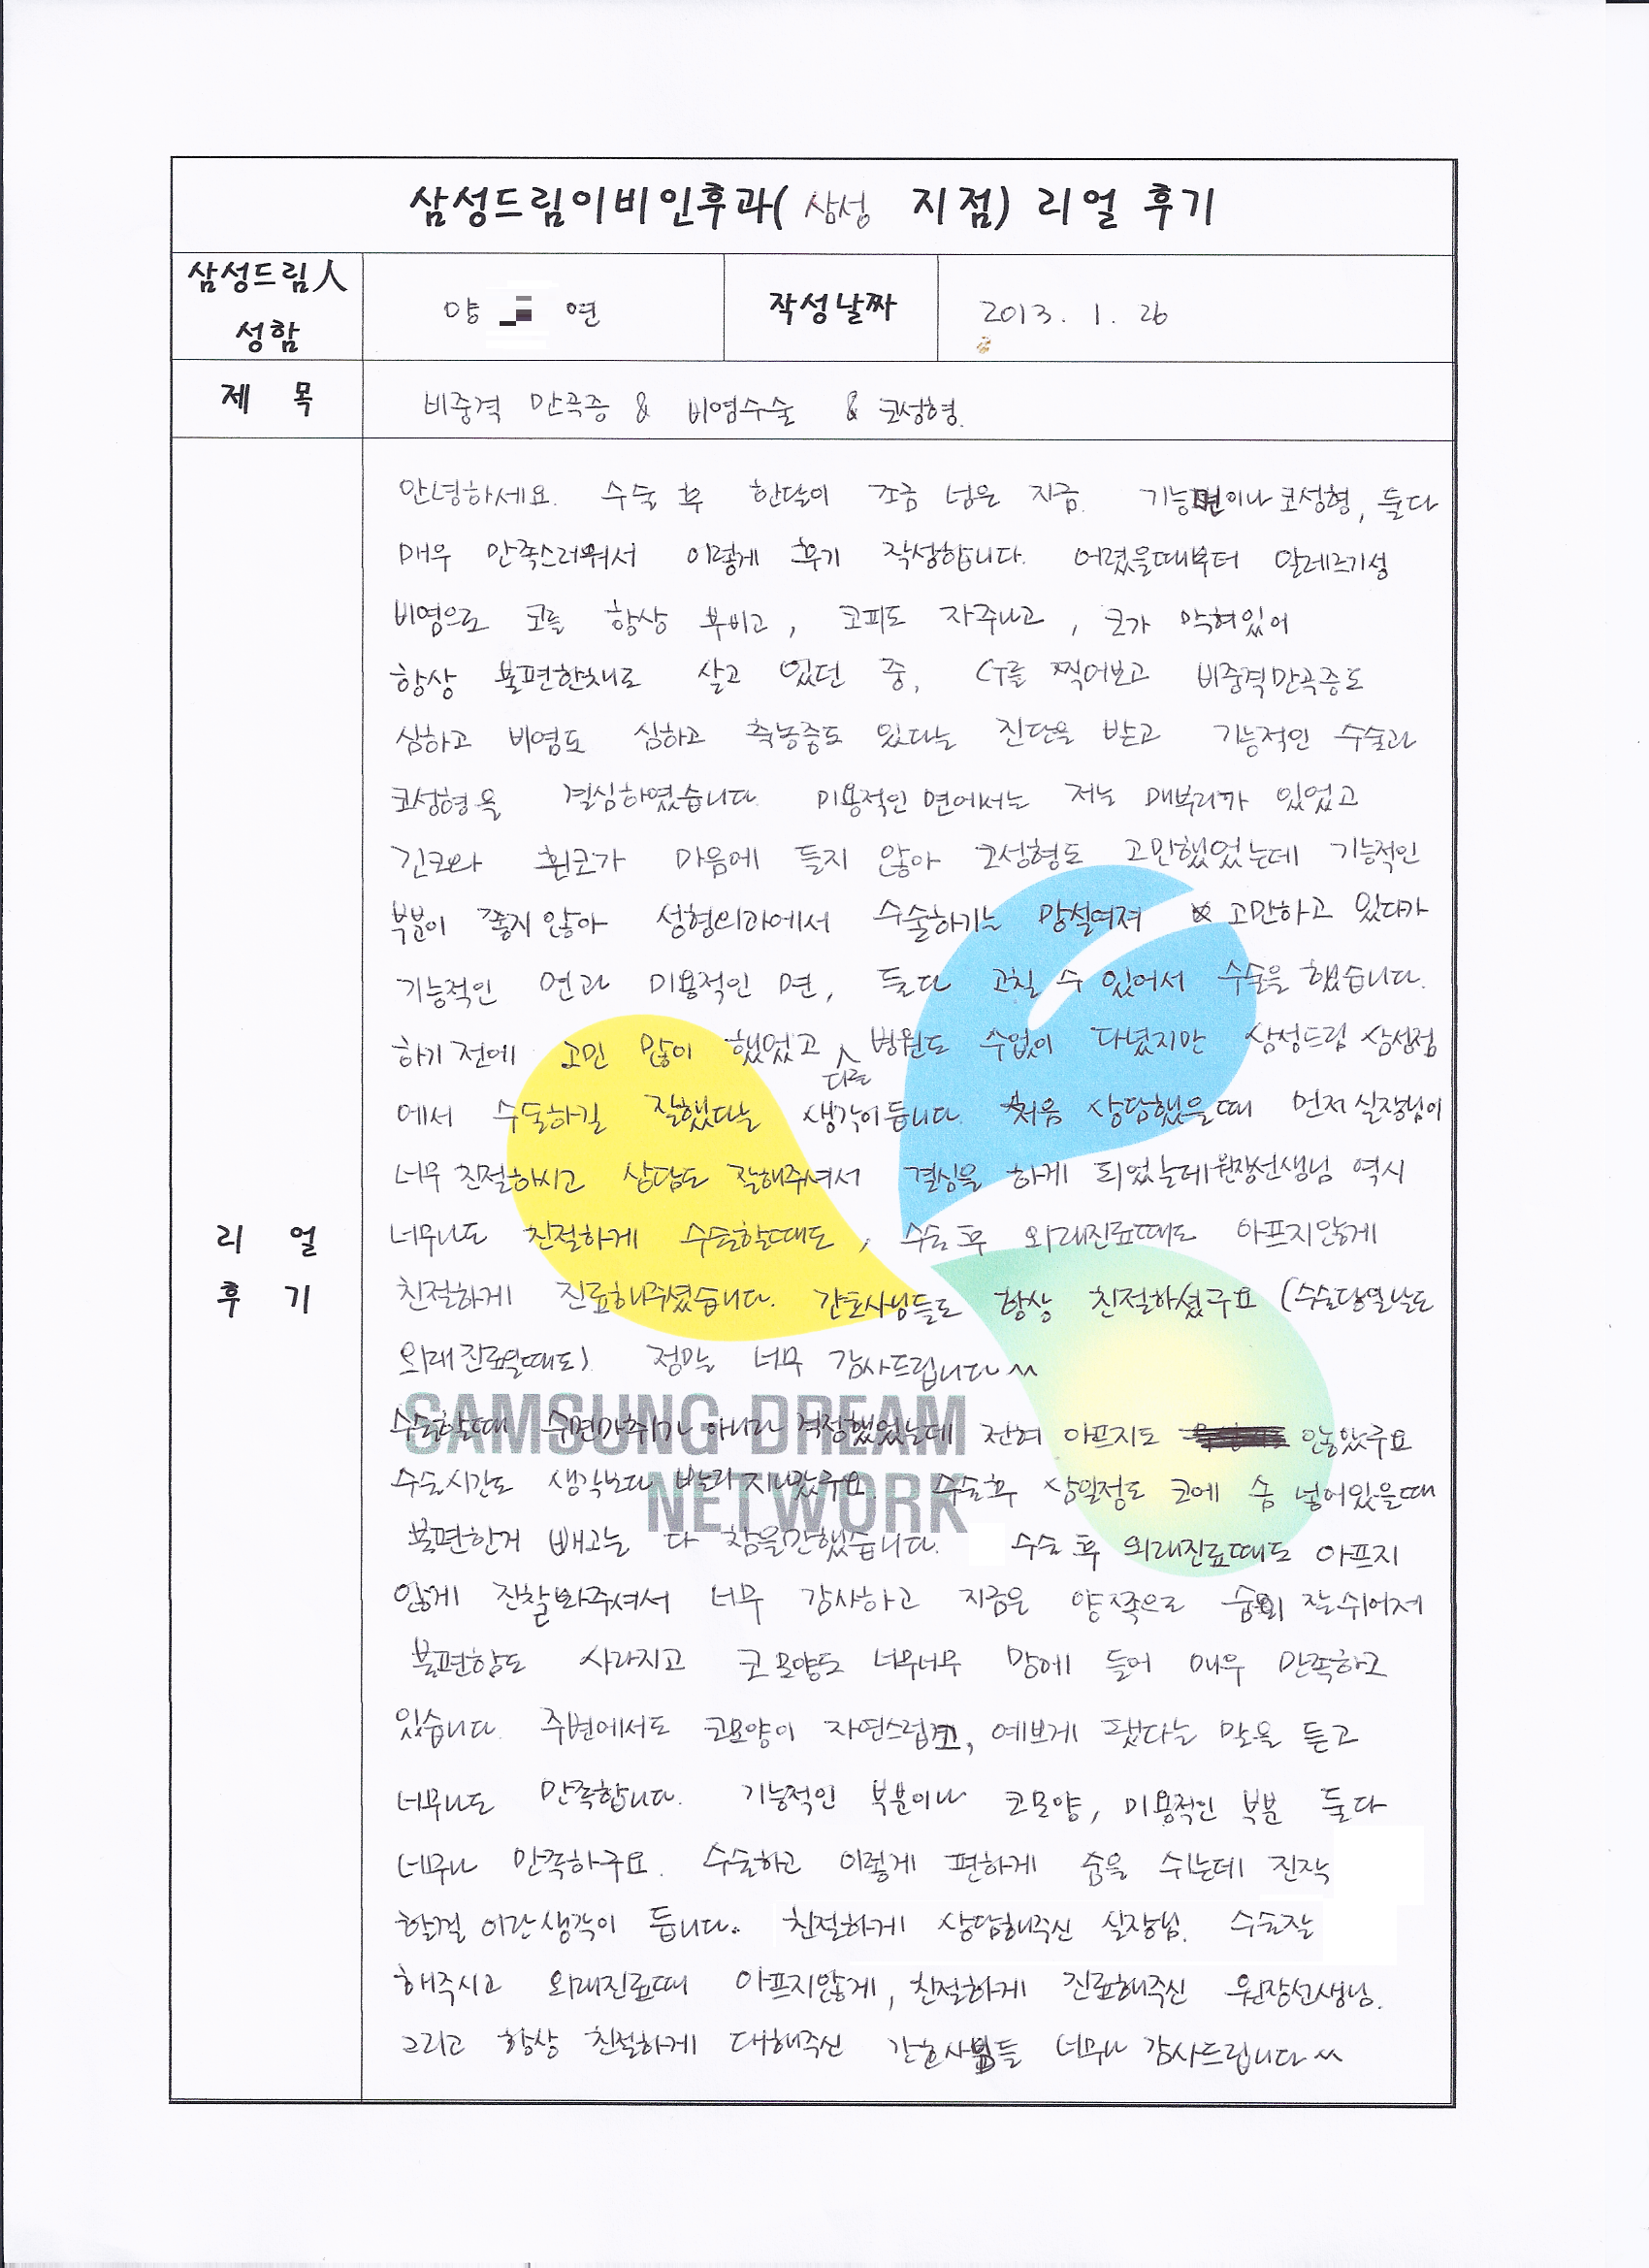 삼성드림이비인후과( 삼성 지점) 리얼 후기
삼성드림人 성함
양 연
작성날짜
2013. 1. 26
제 목
비중격 만곡증 & 비염수술 & 코성형.
리 얼 후 기
안녕하세요. 수술 후 한달이 조금 넘은 지금. 기능면이나 코성형, 둘다
매우 만족스러워서 이렇게 후기 작성합니다. 어렸을때부터 알레르기성
비염으로 코를 항상 부비고, 코피도 자주나고, 코가 막혀있어
항상 불편한채로 살고 있던 중, CT를 찍어보고 비중격만곡증도
심하고 비염도 심하고 축농증도 있다는 진단을 받고 기능적인 수술과
코성형을 결심하였습니다. 미용적인 면에서는 저는 매부리가 있었고
긴코와 휜코가 마음에 들지 않아 코성형도 고민했었는데 기능적인
부분이 좋지 않아 성형외과에서 수술하기는 망설여져 고만하고 있다가
기능적인 면과 미용적인 면, 둘다 고칠 수 있어서 수술을 했습니다.
하기 전에 고민 많이 했었고 다른 병원도 수없이 다녔지만 삼성드림 삼성점
에서 수술하길 잘했다는 생각이 듭니다. 처음 상담했을때 먼저 실장님이
너무 친절하시고 상담도 잘해주셔서 결심을 하게 되었는데 원장선생님 역시
너무나도 친절하게 수술할때도, 수술 후 외래진료때도 아프지않게
친절하게 진료해주셨습니다. 간호사님들도 항상 친절하셨구요 (수술당일날도
외래진료일때도) 정말 너무 감사드립니다^^
수술할때 수면마취가 아니라 걱정했었는데 전혀 아프지도 않았구요
수술시간도 생각보다 빨리 지나갔구요. 수술후 삼일정도 코에 솜 넣어있을때
불편한거 빼고는 다 참을만했습니다. 수술 후 외래진료때도 아프지
않게 진찰봐주셔서 너무 감사하고 지금은 양쪽으로 숨이 잘 쉬어져
불편함도 사라지고 코 모양도 너무너무 맘에 들어 매우 만족하고
있습니다. 주변에서도 코모양이 자연스럽고, 예쁘게 됐다는 말을 듣고
너무나도 만족합니다. 기능적인 부분이나 코모양, 미용적인 부분 둘다
너무나 만족하구요. 수술하고 이렇게 편하게 숨을 쉬는데 진작
할걸 이란 생각이 듭니다.. 친절하게 상담해주신 실장님. 수술잘
해주시고 외래진료때 아프지않게, 친절하게 진료해주신 원장선생님.
그리고 항상 친절하게 대해주신 간호사분들 너무나 감사드립니다^^
SAMSUNG DREAM
NETWORK